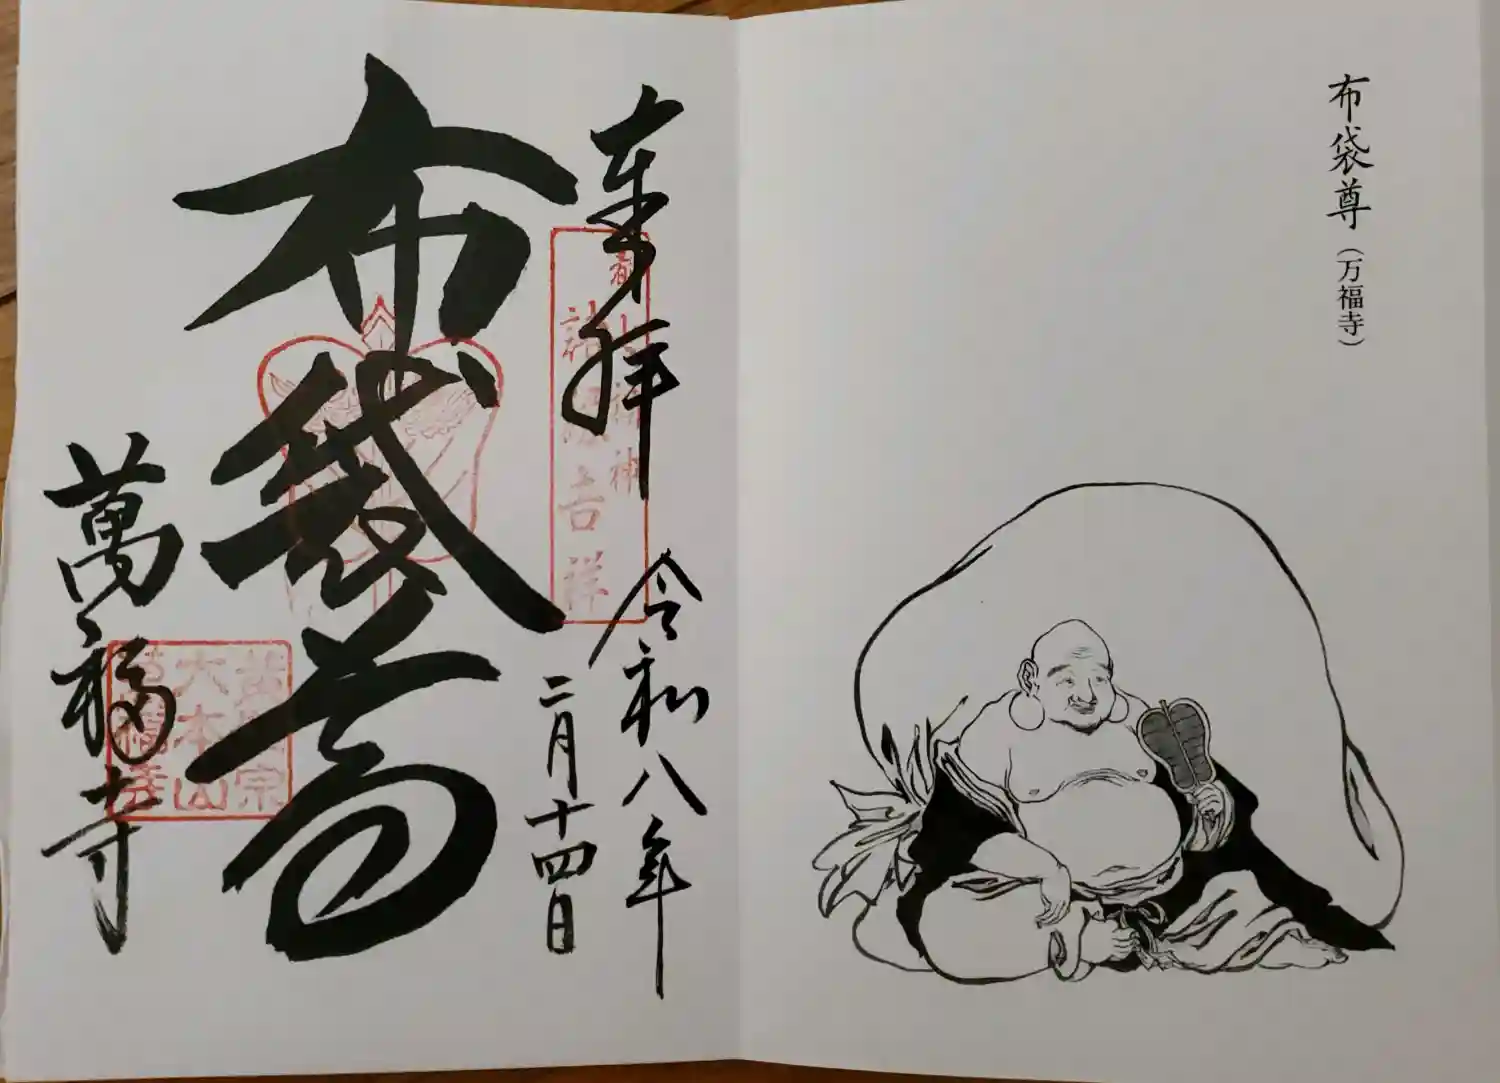 布袋尊
(万福寺)
奉拝
令和八年
二月十四日
都
七福神
諸縁吉祥
布袋尊
萬福寺
黄檗宗
大本山
萬福寺